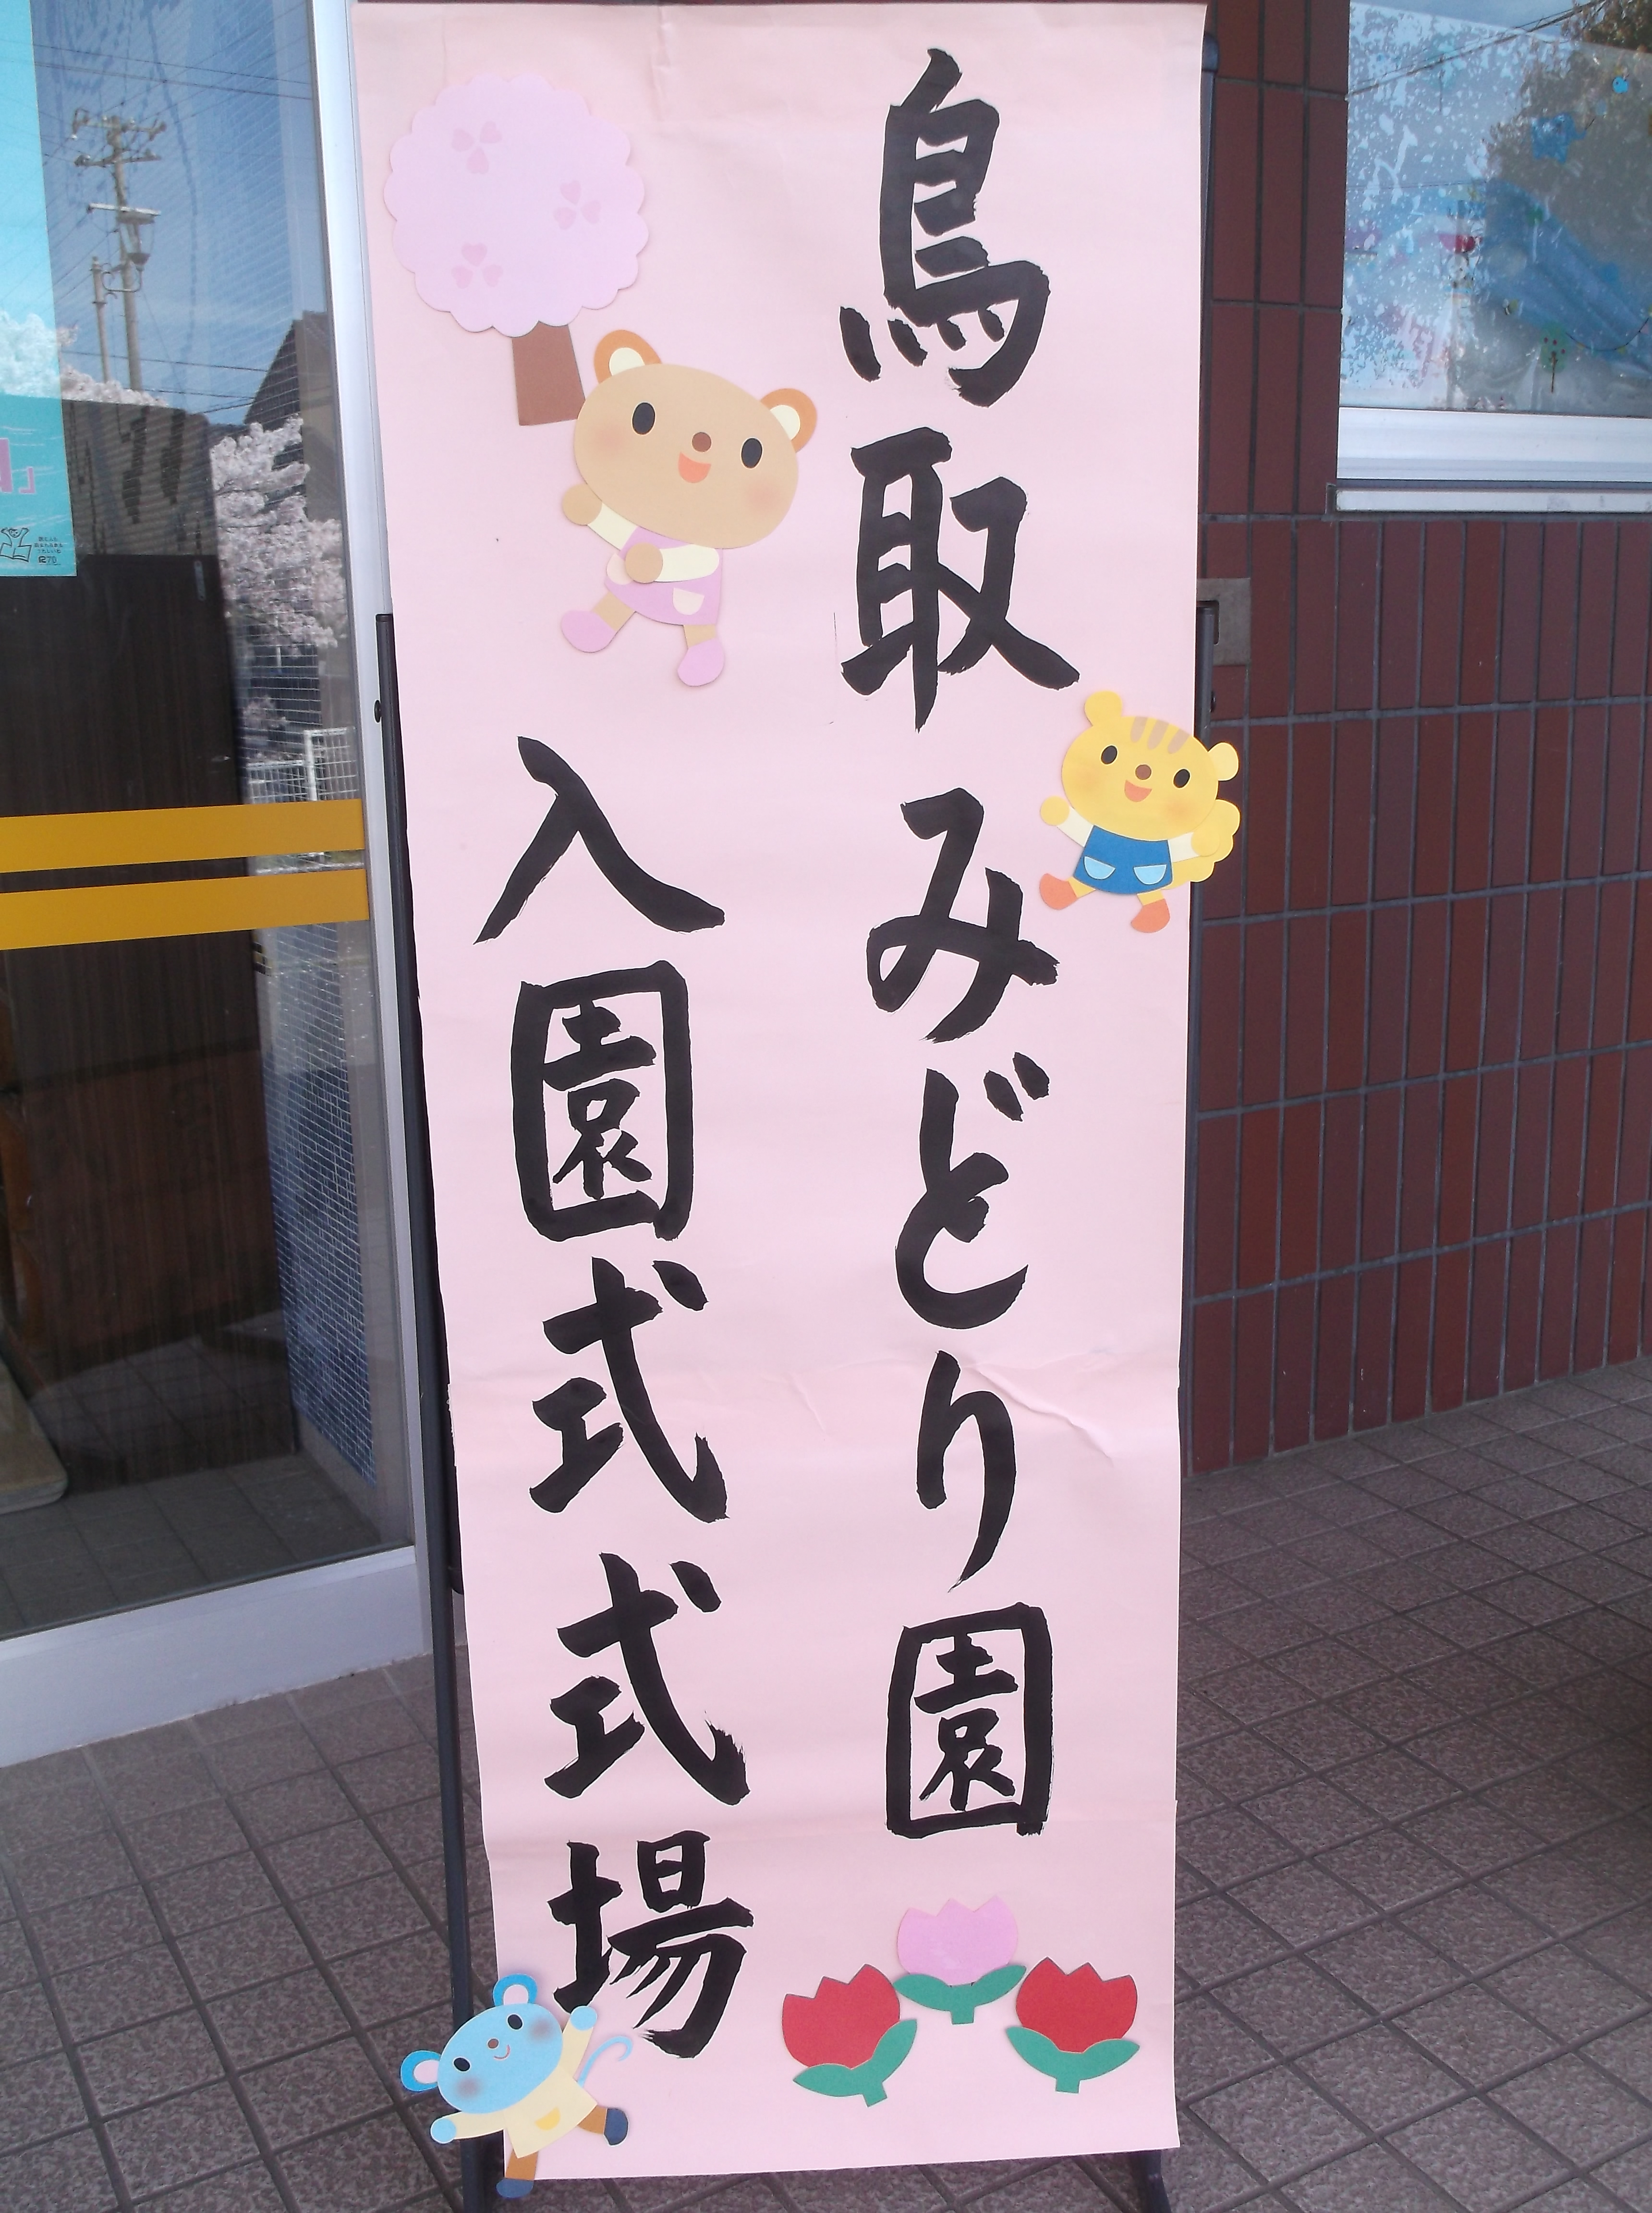 鳥取みどり園
入園式式場